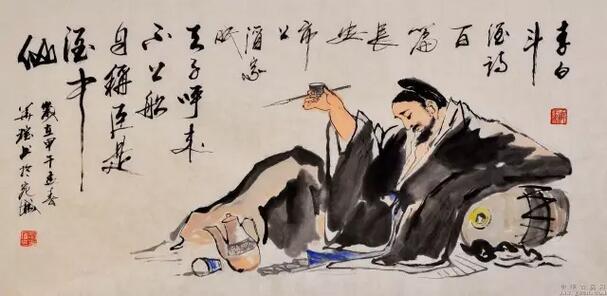 李白
斗
酒诗
百
篇
長
安
市
上
酒家
眠
天子呼来
不上船
自称臣是
酒中
仙
岁在甲午